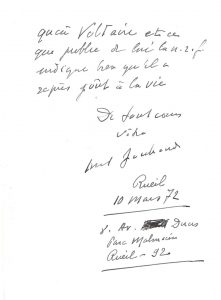 qu'à Voltaire et ce
que publie de lui la n.r.f.
indique bien qu'il a
repris goût à la vie
De tout cœur
vôtre
Marcel Jouhandeau
Rueil
10 Mars 72
Av. Ducis
Parc Malmaison
Rueil - 92